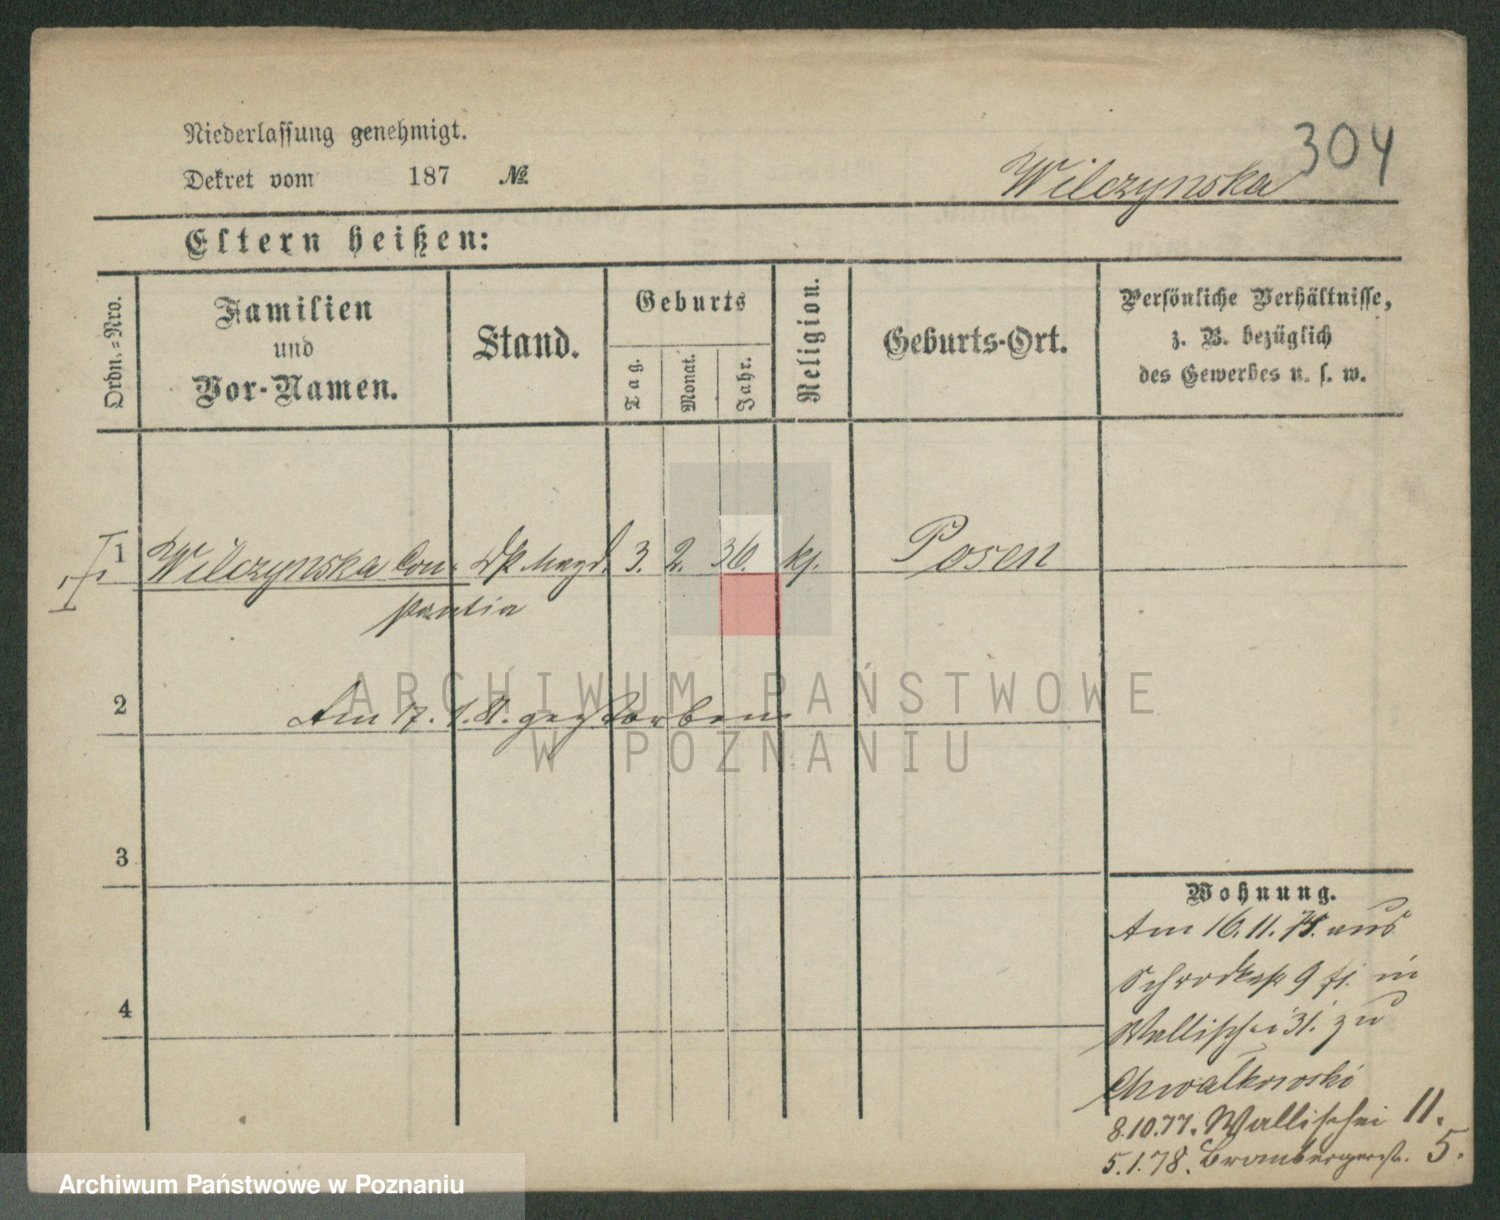 304
Niederlassung genehmigt.
Dekret vom 187 №
Wilczynska
Eltern heißen:
Ordn.=Nro.
Familien
und
Vor-Namen.
Stand.
Geburts
Tag.
Monat.
Jahr.
Religion.
Geburts-Ort.
Persönliche Verhältnisse,
z. B. bezüglich
des Gewerbes u. s. w.
1 Wilczynska Con- 3. 2. 36. kt. Posen
stantia
2
Am 17. 1. 81. gestorben
3
4
Wohnung.
Am 16. 11. 75. aus
9 in
Wallischei 31. zu
Chwalkowski
8.10.77. Wallischei 11.
5.1.78. Brombergerstr. 5.
ARCHIWUM PAŃSTWOWE
W POZNANIU
Archiwum Państwowe w Poznaniu